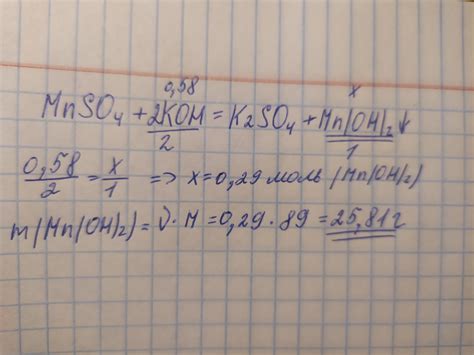 0,58 x
MnSO₄ + 2KOH = K₂SO₄ + Mn(OH)₂↓
2 1
0,58/2 = x/1 => x = 0,29 моль (Mn(OH)₂)
m(Mn(OH)₂) = ν · M = 0,29 · 89 = 25,81 г